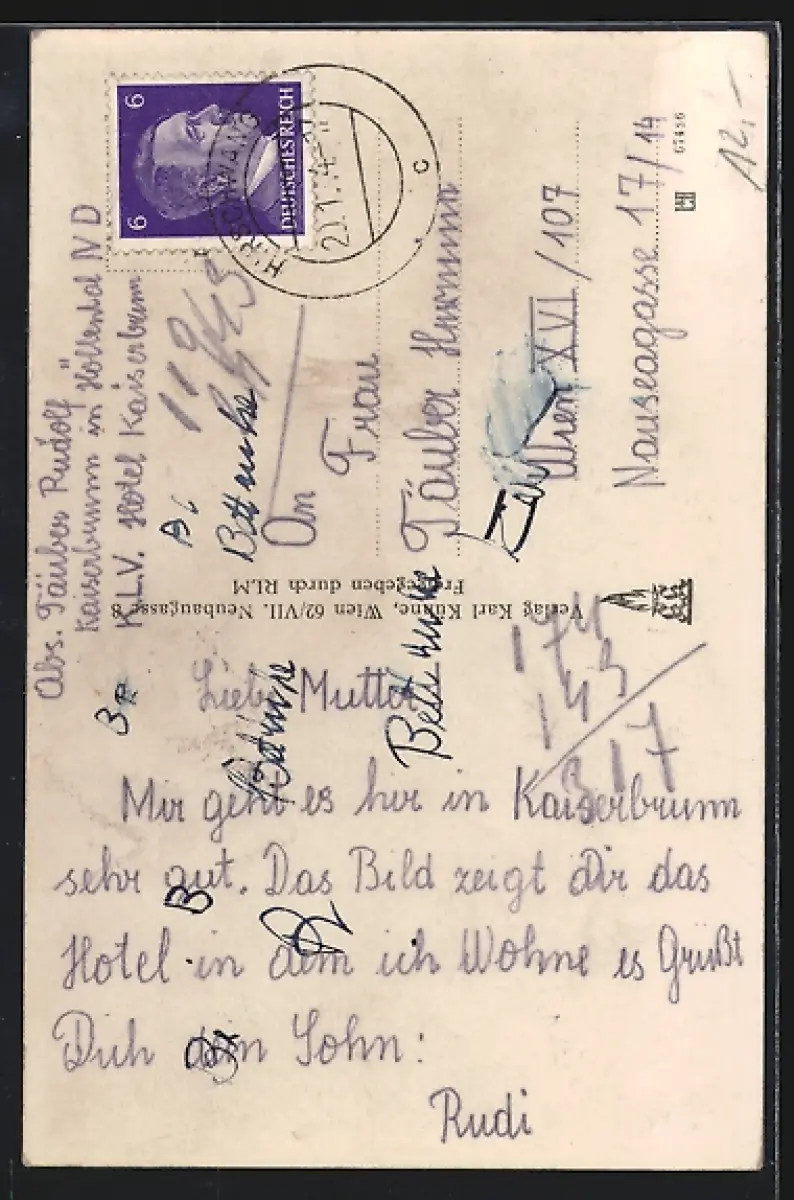 Abs. Täuber Rudolf
Kaiserbrunn in Höllental N D
K.L.V. Hotel Kaiserbrunn
6 6
DEUTSCHES REICH
HIRSCHWANG
c
An
Frau
Täuber Hermine
Wien XVI/107
Nauseagasse 17/14
07456
12,-
Verlag Karl Kühne, Wien 62/VII. Neubaugasse 8
Freigegeben durch RLM
174
143
317
Liebe Mutter
Mir geht es hir in Kaiserbrunn
sehr gut. Das Bild zeigt Dir das
Hotel in dem ich Wohne es Grüßt
Dich dein Sohn:
Rudi